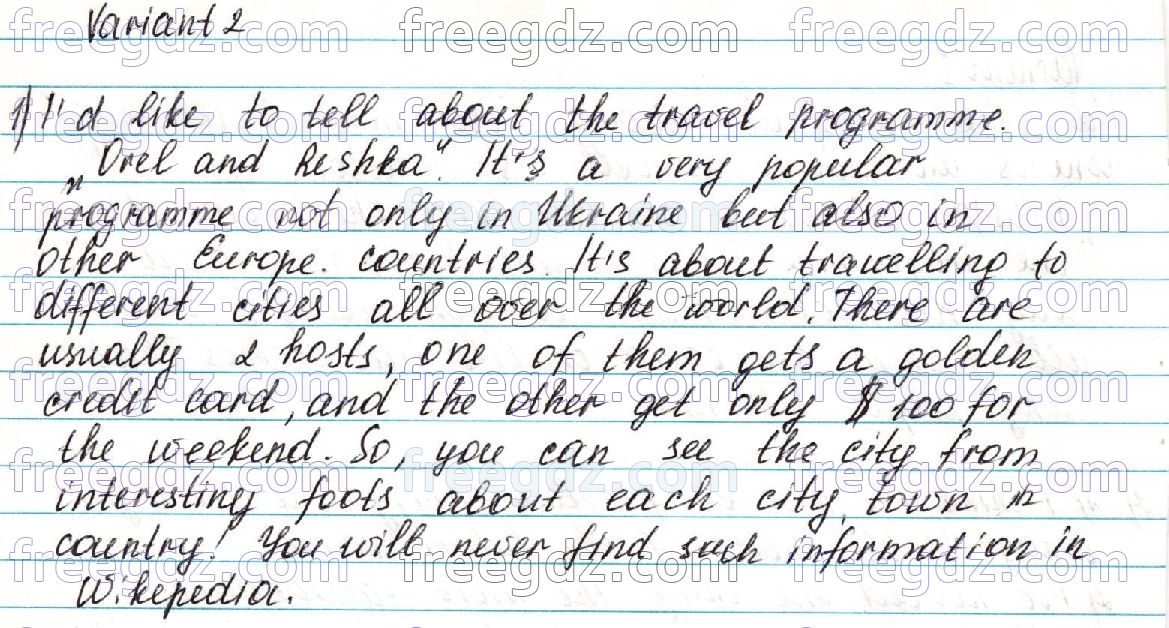 Variant 2
1) I'd like to tell about the travel programme.
„Orel and Reshka". It's a very popular
programme not only in Ukraine but also in
other Europe. countries. It's about travelling to
different cities all over the world. There are
usually 2 hosts, one of them gets a golden
credit card, and the other get only $ 100 for
the weekend. So, you can see the city from
interesting foots about each city, town in
country! You will never find such information in
Wikepedia.